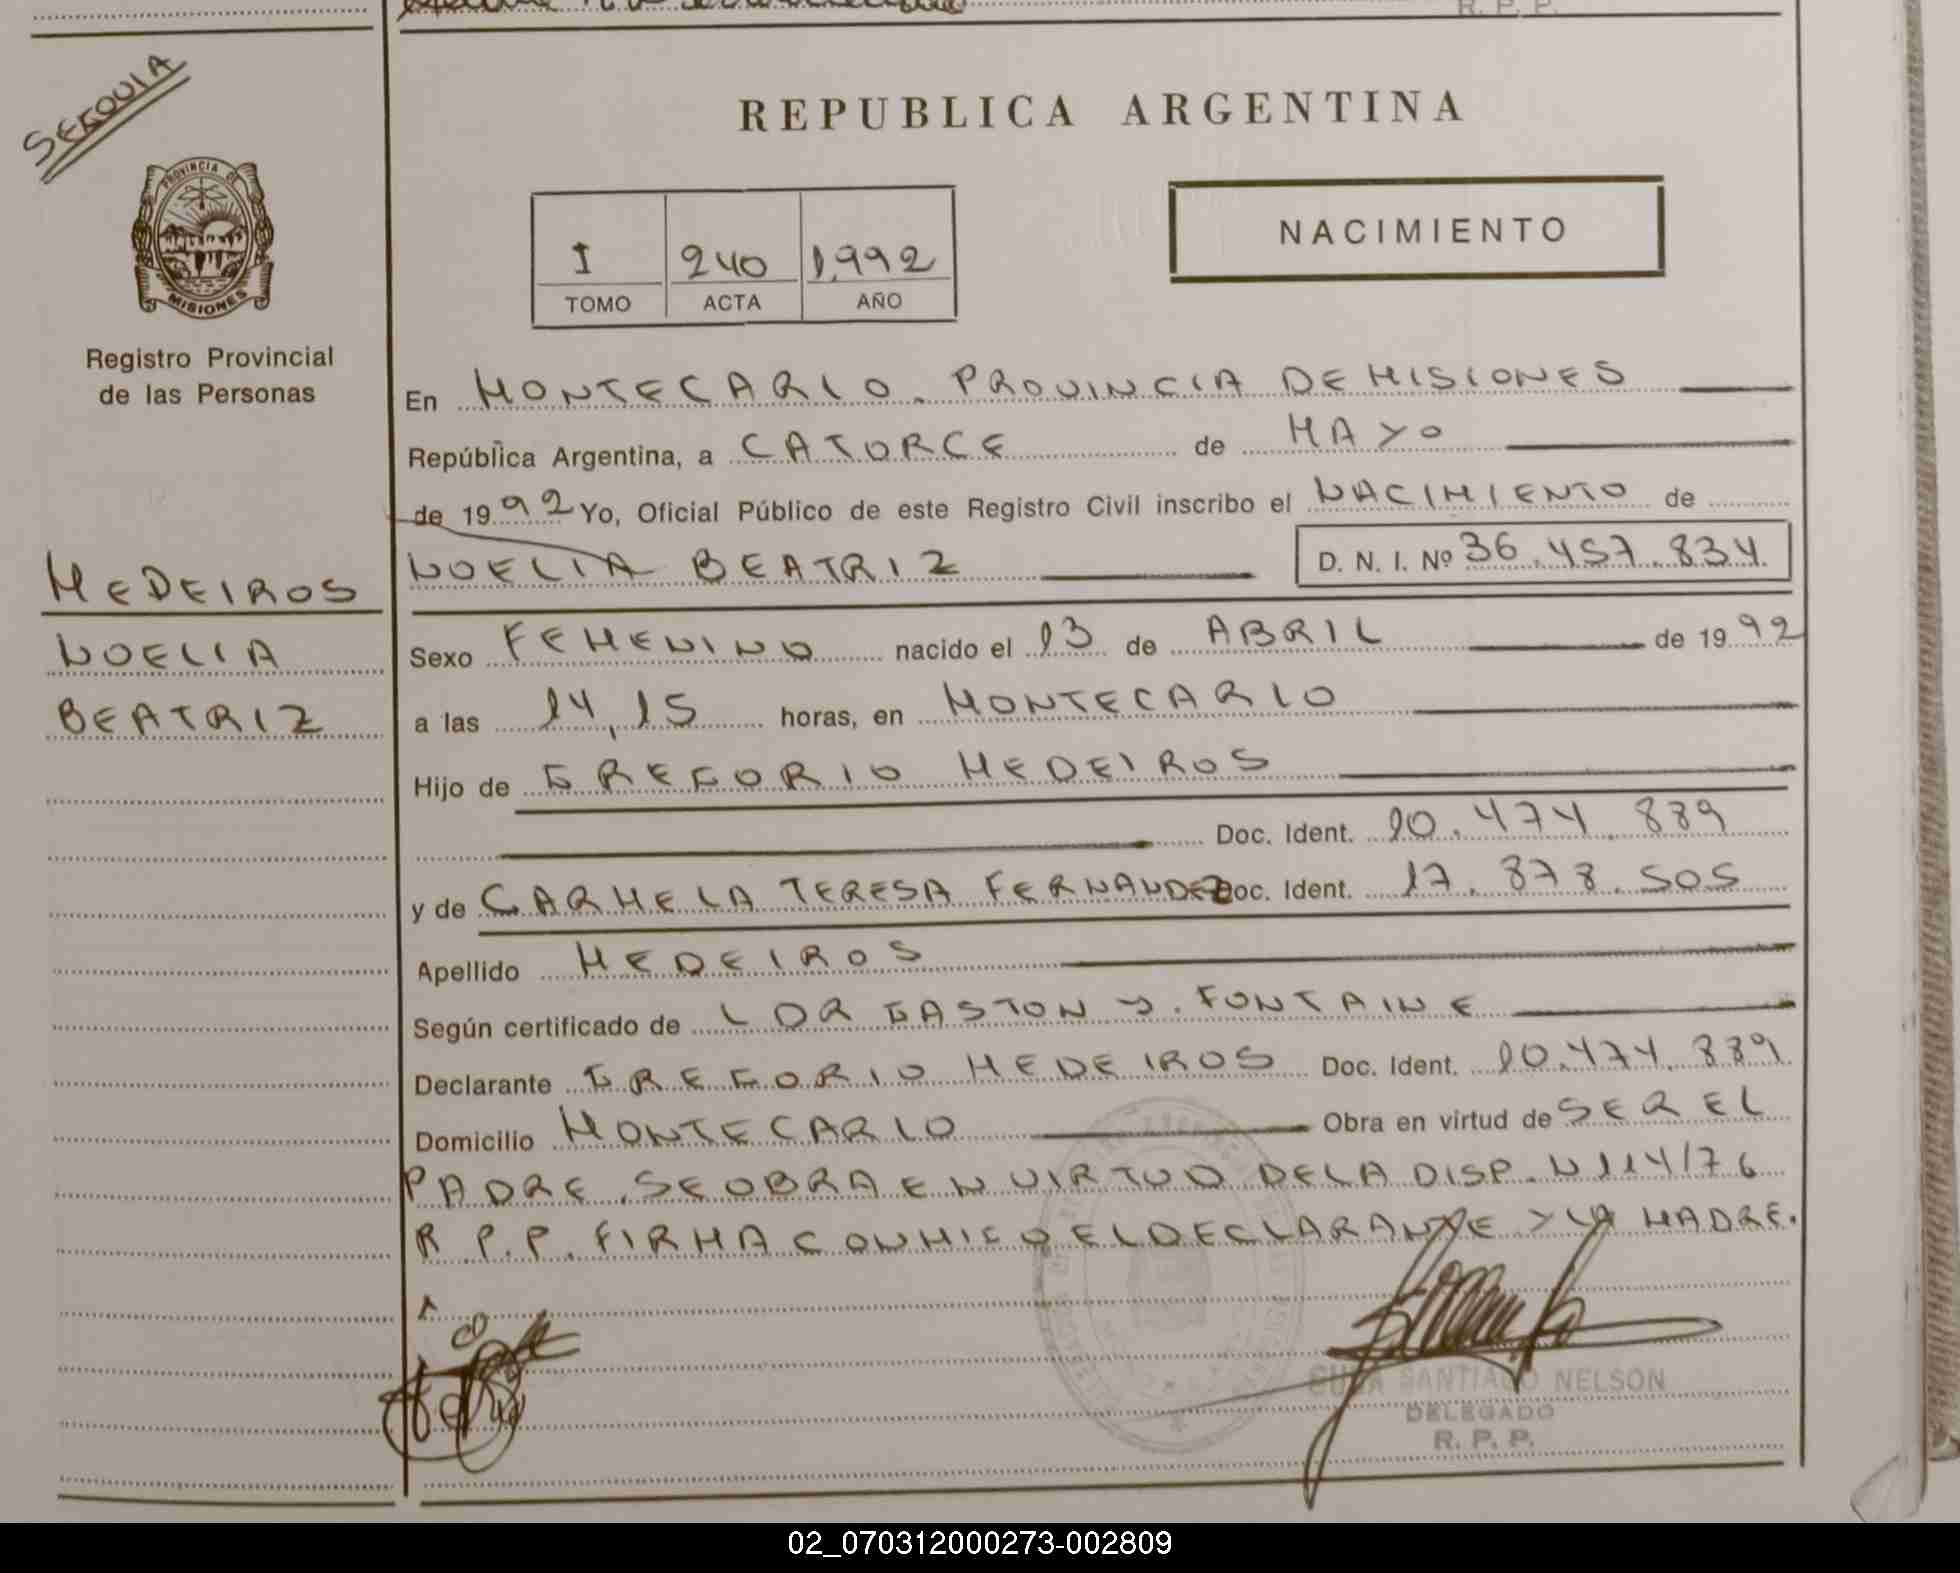 R. P. P.
SEQUIA
REPUBLICA ARGENTINA
PROVINCIA DE
MISIONES
Registro Provincial
de las Personas
I 240 1.992
TOMO ACTA AÑO
NACIMIENTO
En MONTECARLO. PROVINCIA DE MISIONES
República Argentina, a CATORCE de MAYO
de 1992 Yo, Oficial Público de este Registro Civil inscribo el NACIMIENTO de
NOELIA BEATRIZ D. N. I. Nº 36.457.834
MEDEIROS
NOELIA
BEATRIZ
Sexo FEMENINO nacido el 13 de ABRIL de 1992
a las 14,15 horas, en MONTECARLO
Hijo de GREGORIO MEDEIROS
Doc. Ident. 10.474.889
y de CARMELA TERESA FERNANDEZ Doc. Ident. 17.878.505
Apellido MEDEIROS
Según certificado de L DR GASTON Y. FONTAINE
Declarante GREGORIO MEDEIROS Doc. Ident. 10.474.889
Domicilio MONTECARLO Obra en virtud de SER EL
PADRE. SE OBRA EN VIRTUD DE LA DISP. N 114/76
R P.P. FIRMA CONMIGO EL DECLARANTE Y LA MADRE.
SANTIAGO NELSON
DELEGADO
R. P. P.
02_070312000273-002809